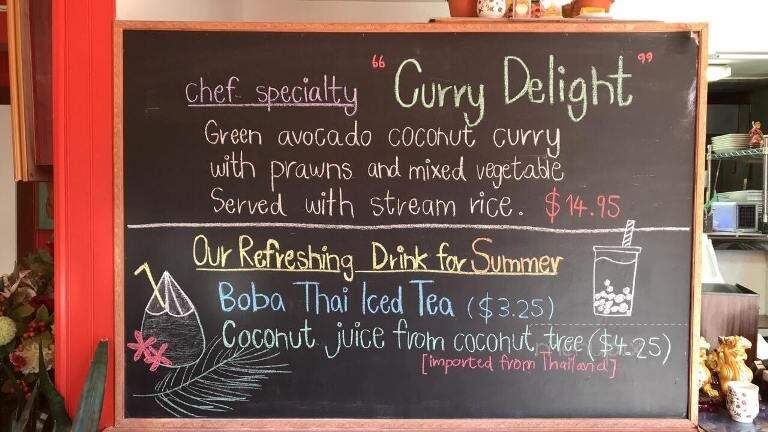 chef specialty "Curry Delight"
Green avocado coconut curry
with prawns and mixed vegetable
Served with stream rice. $14.95
Our Refreshing Drink for Summer
Boba Thai Iced Tea ($3.25)
Coconut juice from coconut tree ($4.25)
[imported from Thailand]